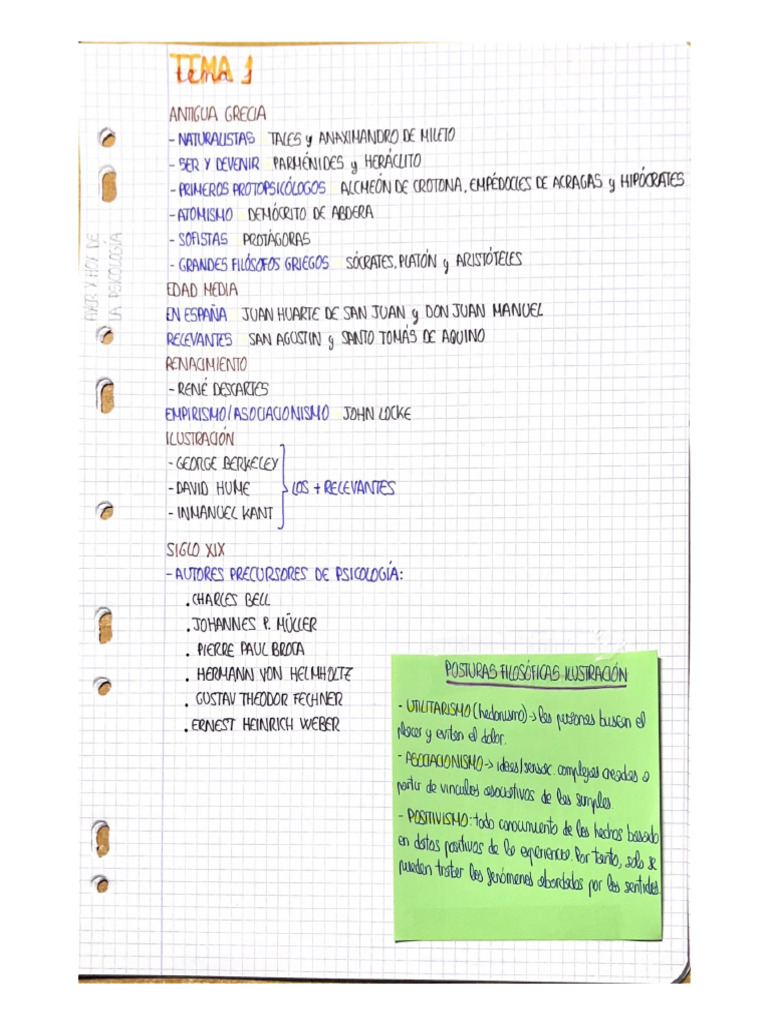 TEMA 1
tema
ANTIGUA GRECIA
- NATURALISTAS TALES y ANAXIMANDRO DE MILETO
- SER Y DEVENIR PARMÉNIDES y HERÁCLITO
- PRIMEROS PROTOPSICÓLOGOS ALCMEÓN DE CROTONA, EMPÉDOCLES DE ACRAGAS y HIPÓCRATES
- ATOMISMO DEMÓCRITO DE ABDERA
- SOFISTAS PROTÁGORAS
- GRANDES FILÓSOFOS GRIEGOS SÓCRATES, PLATÓN y ARISTÓTELES
EDAD MEDIA
EN ESPAÑA JUAN HUARTE DE SAN JUAN y DON JUAN MANUEL
RELEVANTES SAN AGUSTIN y SANTO TOMÁS DE AQUINO
RENACIMIENTO
- RENÉ DESCARTES
EMPIRISMO/ASOCIACIONISMO JOHN LOCKE
ILUSTRACIÓN
- GEORGE BERKELEY
- DAVID HUME
- INMANUEL KANT
LOS + RELEVANTES
SIGLO XIX
- AUTORES PRECURSORES DE PSICOLOGÍA:
. CHARLES BELL
. JOHANNES P. MÜLLER
. PIERRE PAUL BROCA
. HERMANN VON HELMHOLTZ
. GUSTAV THEODOR FECHNER
. ERNEST HEINRICH WEBER
AYER Y HOY DE
LA PSICOLOGÍA
POSTURAS FILOSÓFICAS ILUSTRACIÓN
- UTILITARISMO (hedonismo) -> las personas buscan el
placer y evitan el dolor.
- ASOCIACIONISMO -> ideas/sensac. complejas creadas a
partir de vinculos asociativos de las simples.
- POSITIVISMO: todo conocimiento de los hechos basado
en datos positivos de la experiencia. Por tanto, solo se
pueden tratar los fenómenos abordados por los sentidos.